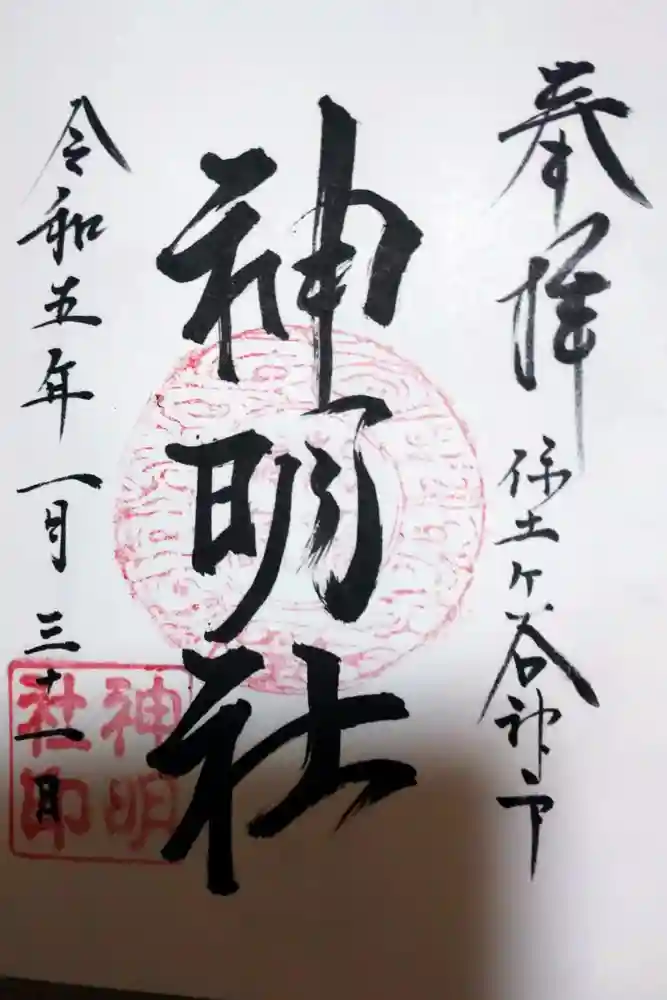 奉拝
保土ヶ谷神戸
神明社
令和五年一月三十一日
神明
社印